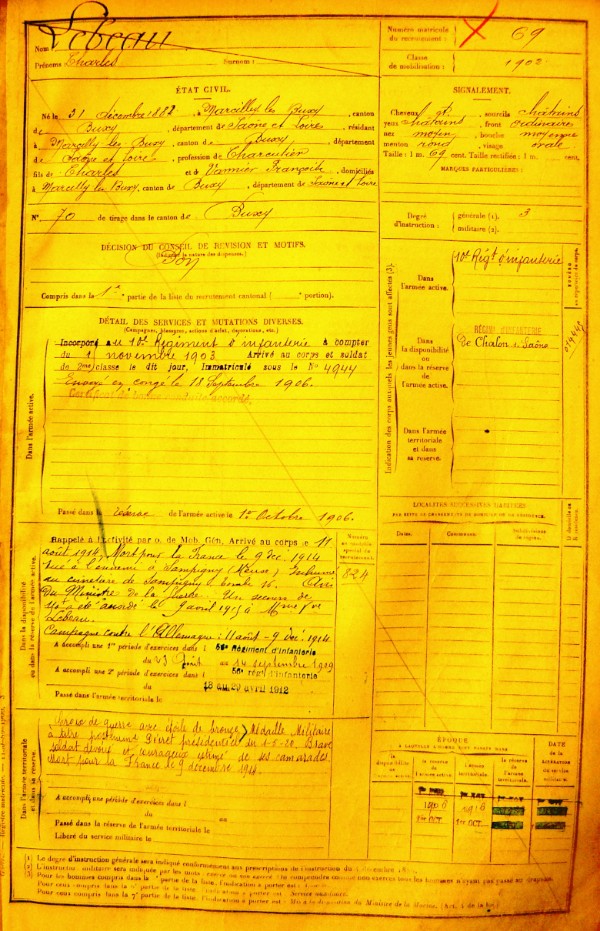 Nom Lebeau
Prénoms Charles Surnom :
Numéro matricule du recrutement : 69
Classe de mobilisation : 1902
ÉTAT CIVIL.
Né le 31 décembre 1882, à Marcilly les Buxy, canton
de Buxy, département de Saône et Loire, résidant
à Marcilly les Buxy, canton de Buxy, département
de Saône et Loire, profession de Charcutier
fils de Charles et de Vannier Françoise, domiciliés
à Marcilly les Buxy, canton de Buxy, département de Saône et Loire
N° 70 de tirage dans le canton de Buxy
SIGNALEMENT.
Cheveux et sourcils châtains
yeux châtains, front ordinaire
nez moyen, bouche moyenne
menton rond, visage ovale
Taille : 1 m. 69 cent. Taille rectifiée : 1 m. cent.
MARQUES PARTICULIÈRES :
Degré d'instruction : générale (1). 3
militaire (2).
DÉCISION DU CONSEIL DE RÉVISION ET MOTIFS.
Bon
Compris dans la 1re partie de la liste du recrutement cantonal ( portion).
DÉTAIL DES SERVICES ET MUTATIONS DIVERSES.
(Campagnes, blessures, actions d'éclat, décorations, etc.)
Dans l'armée active.
Incorporé au 10e Régiment d'infanterie à compter
du 1 novembre 1903 Arrivé au corps et soldat
de 2me classe le dit jour, Immatriculé sous le No 4944
Envoyé en congé le 18 Septembre 1906.
Certificat de bonne conduite accordé
Passé dans la réserve de l'armée active le 1er Octobre 1906.
Indication des corps auxquels les jeunes gens sont affectés (3).
Dans l'armée active. 10e Régt d'infanterie
Dans la disponibilité ou dans la réserve de l'armée active. RÉGIMENT D'INFANTERIE
De Chalon s. Saône
Dans l'armée territoriale et dans sa réserve.
Dans la disponibilité ou dans la réserve de l'armée active.
Rappelé à l'activité par o. de Mob. Gén. Arrivé au corps le 11
août 1914. Mort pour la France le 9 déc. 1914
tué à l'ennemi à Sampigny (Meuse) Inhumé
au cimetière de Sampigny tombe 16. Avis
du Ministre de la Guerre. Un secours de
a été accordé le 9 avril 1915 à Mme Vve
Lebeau.
Campagne contre l'Allemagne : 11 août - 9 déc. 1914
A accompli une 1re période d'exercices dans 56e Régiment d'infanterie
du 23 Août au 14 septembre 1909
A accompli une 2e période d'exercices dans 56e régt d'infanterie
du 13 au 29 avril 1912
Passé dans l'armée territoriale le
824
LOCALITÉS SUCCESSIVES HABITÉES
PAR SUITE DE CHANGEMENT DE DOMICILE OU DE RÉSIDENCE.
Dates. Communes. Subdivisions de région.
Dans l'armée territoriale et dans sa réserve.
Croix de guerre avec étoile de bronze, Médaille Militaire
à titre posthume Décret présidentiel du 1-5-20. Brave
soldat dévoué et courageux estimé de ses camarades
Mort pour la France le 9 décembre 1914
A accompli une période d'exercices dans
du au
Passé dans la réserve de l'armée territoriale le
Libéré du service militaire le
ÉPOQUE
À LAQUELLE L'HOMME DOIT PASSER DANS
la disponibilité
la réserve de l'armée active.
l'armée territoriale.
la réserve de l'armée territoriale.
DATE de la libération du service militaire.
1906 1916
1er OCT 1er OCT
(1) Le degré d'instruction générale sera indiqué conformément aux prescriptions de l'instruction du 4 décembre